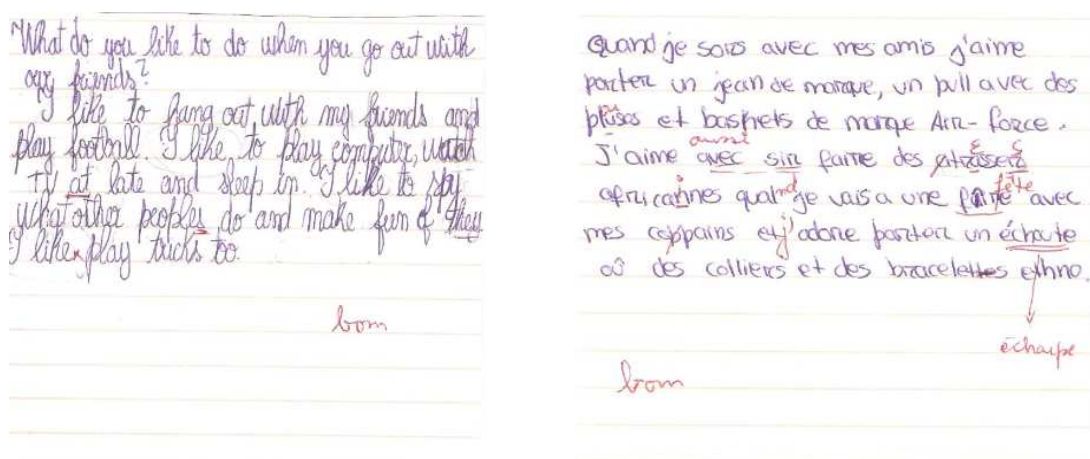 What do you like to do when you go out with
ou friends?
I like to hang out, with my friends and
play football. I like to play computer, watch
TV at late and sleep in. I like to spy
what other peoples do and make fun of they
I like play tricks too.
bom
Quand je sors avec mes amis j'aime
porter un jean de marque, un pull avec des
et baskets de marque Air-force.
aussi
J'aime avec sir faire des
africainnes quand je vais a une fête avec
mes coppains et j'adore porter un écharte
où des colliers et des bracelettes ethno.
écharpe
bom